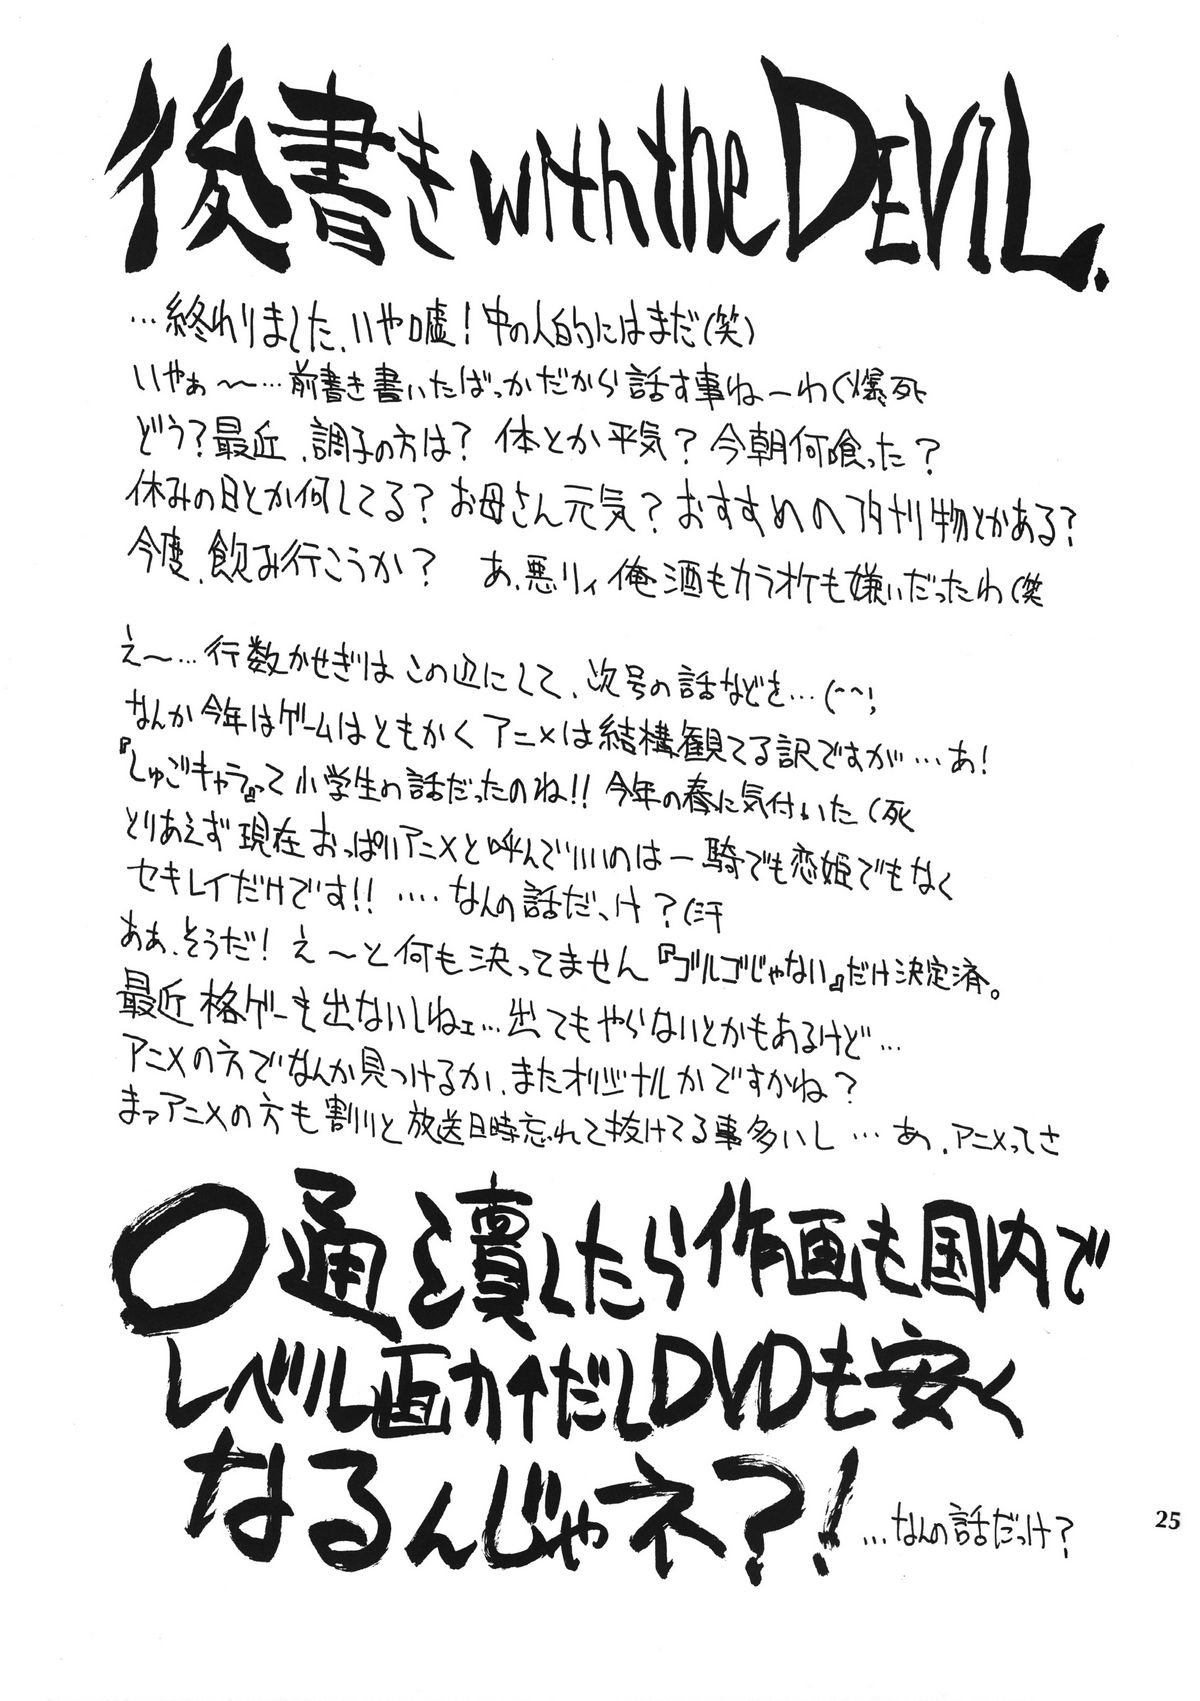 後書き with the DEVIL.
…終わりました、いや嘘！中の人的にはまだ(笑)
いやぁ～…前書き書いたばっかだから話す事ねーわ(爆死
どう？最近、調子の方は？ 体とか平気？今朝何喰った？
休みの日とか何してる？お母さん元気？おすすめのフタナリ物とかある？
今度、飲み行こうか？ あ、悪リィ俺酒もカラオケも嫌いだったわ(笑
え～…行数かせぎはこの辺にして、次号の話などを…(^^;
なんか今年はゲームはともかくアニメは結構観てる訳ですが…あ！
『しゅごキャラ』って小学生の話だったのね!!今年の春に気付いた(死
とりあえず現在おっぱいアニメと呼んでいいのは一騎でも恋姫でもなく
セキレイだけです!! ‥‥なんの話だっけ？(汗
ああ、そうだ！え～と何も決ってません『ゴルゴじゃない』だけ決定済。
最近格ゲーも出ないしねェ…出てもやらないとかもあるけど…
アニメの方でなんか見つけるか、またオリジナルかですかね？
まァアニメの方も割りと放送日時忘れて抜けてる事多いし…あ、アニメってさ
〇通を潰したら作画も国内で
レベル画力↑だしDVDも安く
なるんじゃネ？！
…なんの話だっけ？
25